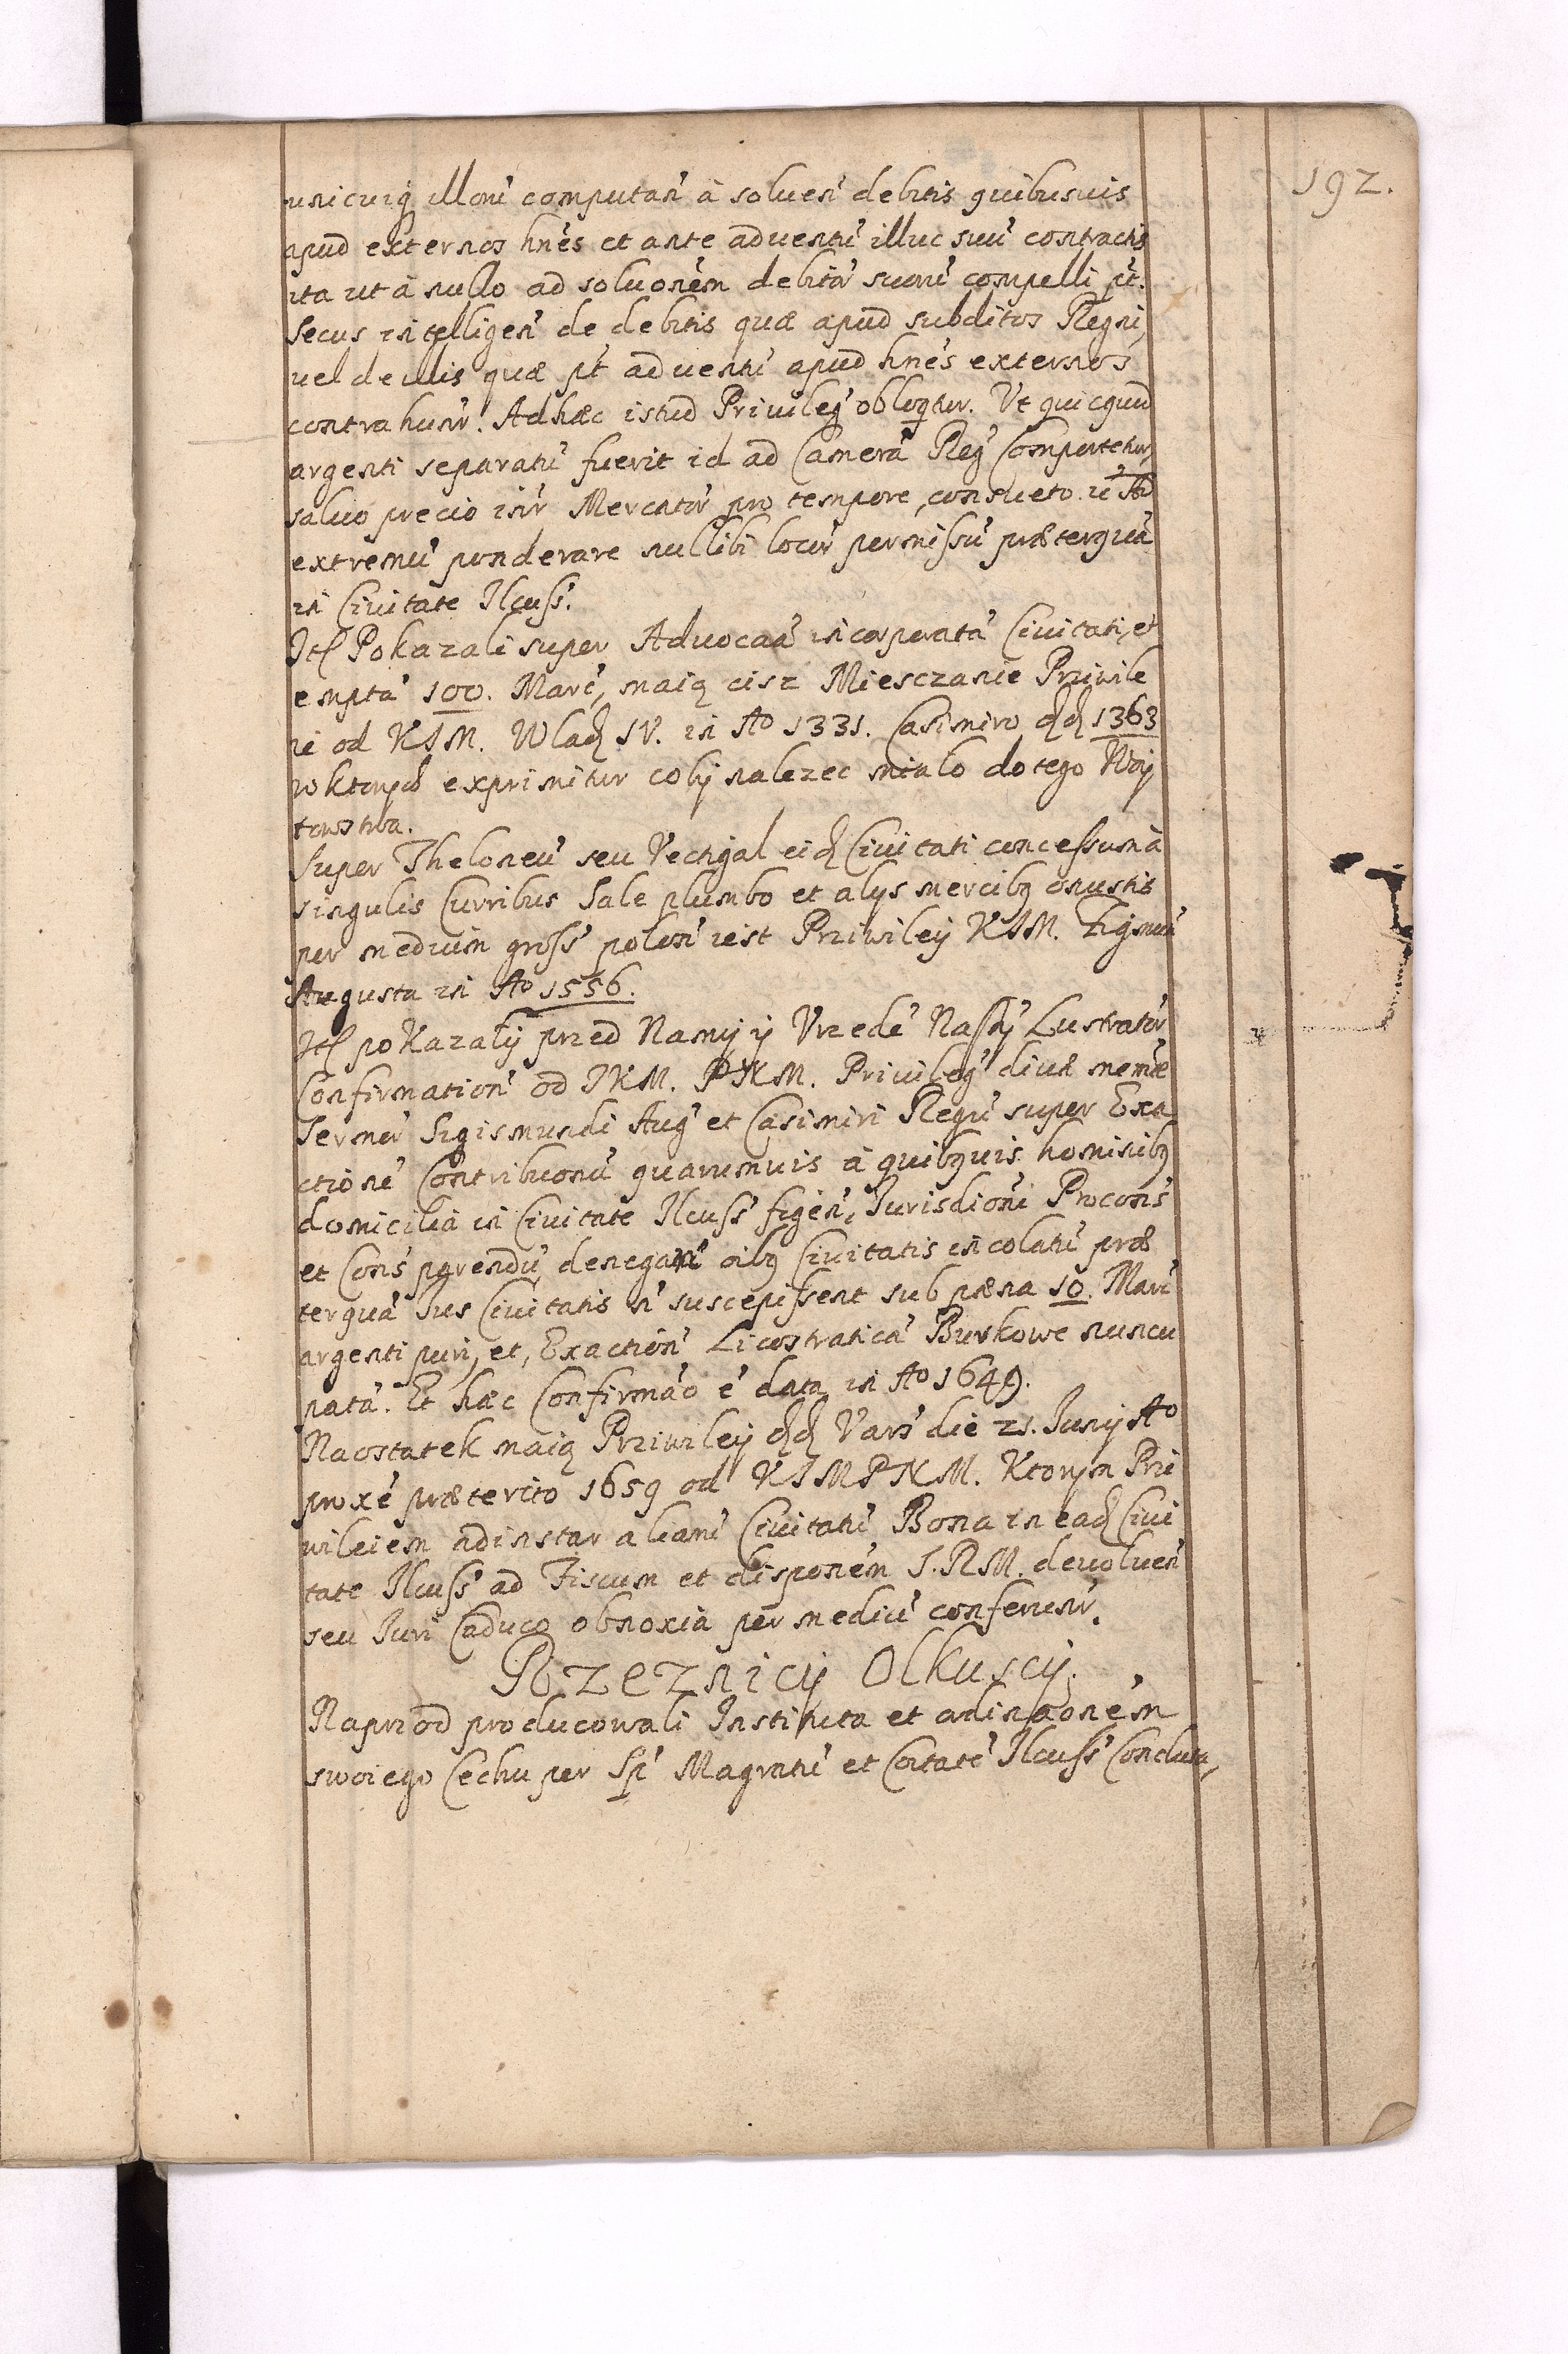 192.
unicuiq illoru' computan' à soluen' debitis quibusuis
apud externos hn'es et ante aduentu' illuc suu' contractis
ita ut à nullo ad soluone'm debitor' suoru' compelli pt'.
Secus intelligen' de debitis quæ apud subditos Regni,
uel de illis quæ pt' aduentu' apud hn'es externos
contrahunr'. Ad hæc istud Privileg' obloqtur. Ut quicquid
argenti separatu' fuerit id ad Camera' Reg' Comportetur,
saluo precio inr' Mercator' pro tempore, consueto.
extremu' ponderare nullibi locor' permissu' præterqua'
in Ciuitate Ilcuss'.
Itd Pokazali super Aduocaa' incorporata' Ciuitati, et
empta' 100. Marc', maią cisz Miesczanie Priwile
ie od KJM. Wlad IV. in Aº 1331. Casimiro dd 1363
w ktorych exprimitur coby nalezec mialo do tego Woy
towstwa.
Super Theloneu' seu Vectigal eid Ciuitati concessum à
singulis Curribus Sale plumbo et alys mercibq onustis
per medium gross' polon' iest Prziwiley KJM. Zigmun'
Augusta in Aº 1556.
Itd pokazaly przed Namy y Vrzede' Nassy' Lustrator'
Confirmation' od JKM. PNM. Privileg' diuæ mem'æ
Sermor' Sigismundi Aug' et Casimiri Regu' super Exa
ctione' Contribuonu' quarumuis à quibquis hominibq
domicilia in Ciuitate Ilcuss' figen', Jurisdioni' Procons'
et Cons' parendu', denegani' oibq Ciuitatis incolatu' præ
terqua' Jus Ciuitatis n' suscepissent sub pæna 10. Marc'
argenti puri, et, Exaction' Licostratica' Burkowe nuncu
pata'. Et hæc Confirma'o e' data in Aº 1649.
Na ostatek maią Prziwiley dd Vars' die 21. Juny Aº
proxe' præterito 1659 od KJMPNM. Ktorym Prze
wileiem adinstar aliaru' Ciuitatu' Bona in ead Ciui
tate Ilcuss' ad Fiscum et dispone'm S.R.M. deuoluen'
seu Juri Caduco obnoxia per mediu' conferunr'.
Rzeznicy Olkuscy.
Naprzod producowali Instituta et ordinaone'm
swoiego Cechu per Sp' Magratu' et Coitate' Ilcuss' Conclusa,